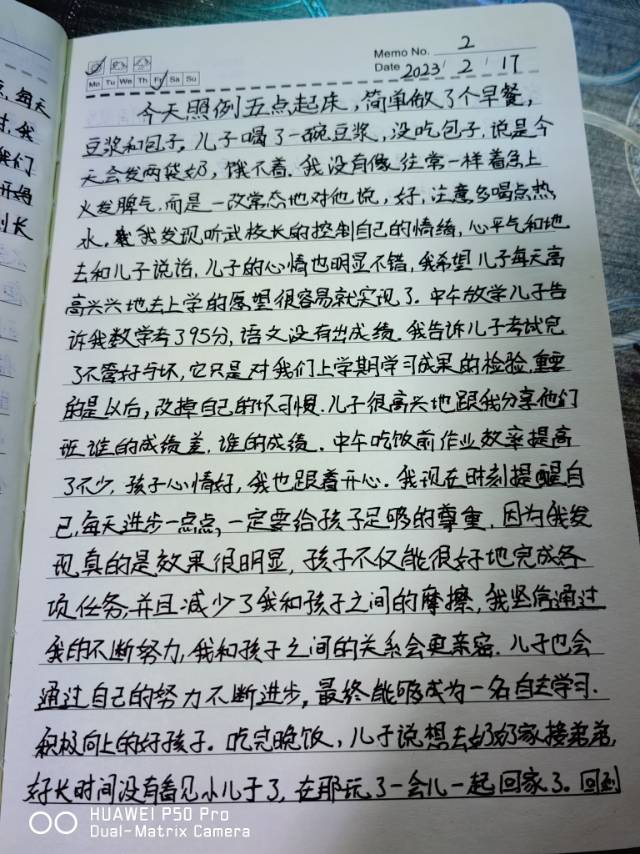 每天
我
我们
开始
长
Memo No. 2
Mo Tu We Th Fr Sa Su
Date 2023 / 2 / 17
今天照例五点起床，简单做了个早餐，
豆浆和包子。儿子喝了一碗豆浆，没吃包子，说是今
天会发两袋奶，饿不着。我没有像往常一样着急上
火发脾气，而是一改常态地对他说，好，注意多喝点热
水，我发现听武校长的控制自己的情绪，心平气和地
去和儿子说话，儿子的心情也明显不错，我希望儿子每天高
高兴兴地去上学的愿望很容易就实现了。中午放学儿子告
诉我数学考了95分，语文没有出成绩。我告诉儿子考试完
了不管好与坏，它只是对我们上学期学习成果的检验，重要
的是以后，改掉自己的坏习惯。儿子很高兴地跟我分享他们
班谁的成绩差，谁的成绩。中午吃饭前作业效率提高
了不少，孩子心情好，我也跟着开心。我现在时刻提醒自
己，每天进步一点点，一定要给孩子足够的尊重，因为我发
现真的是效果很明显，孩子不仅能很好地完成各
项任务，并且减少了我和孩子之间的摩擦，我坚信通过
我的不断努力，我和孩子之间的关系会更亲密。儿子也会
通过自己的努力不断进步，最终能够成为一名自主学习、
积极向上的好孩子。吃完晚饭，儿子说想去奶奶家接弟弟，
好长时间没有看见小儿子了，在那玩了一会儿一起回家了。回到
HUAWEI P50 Pro
Dual-Matrix Camera